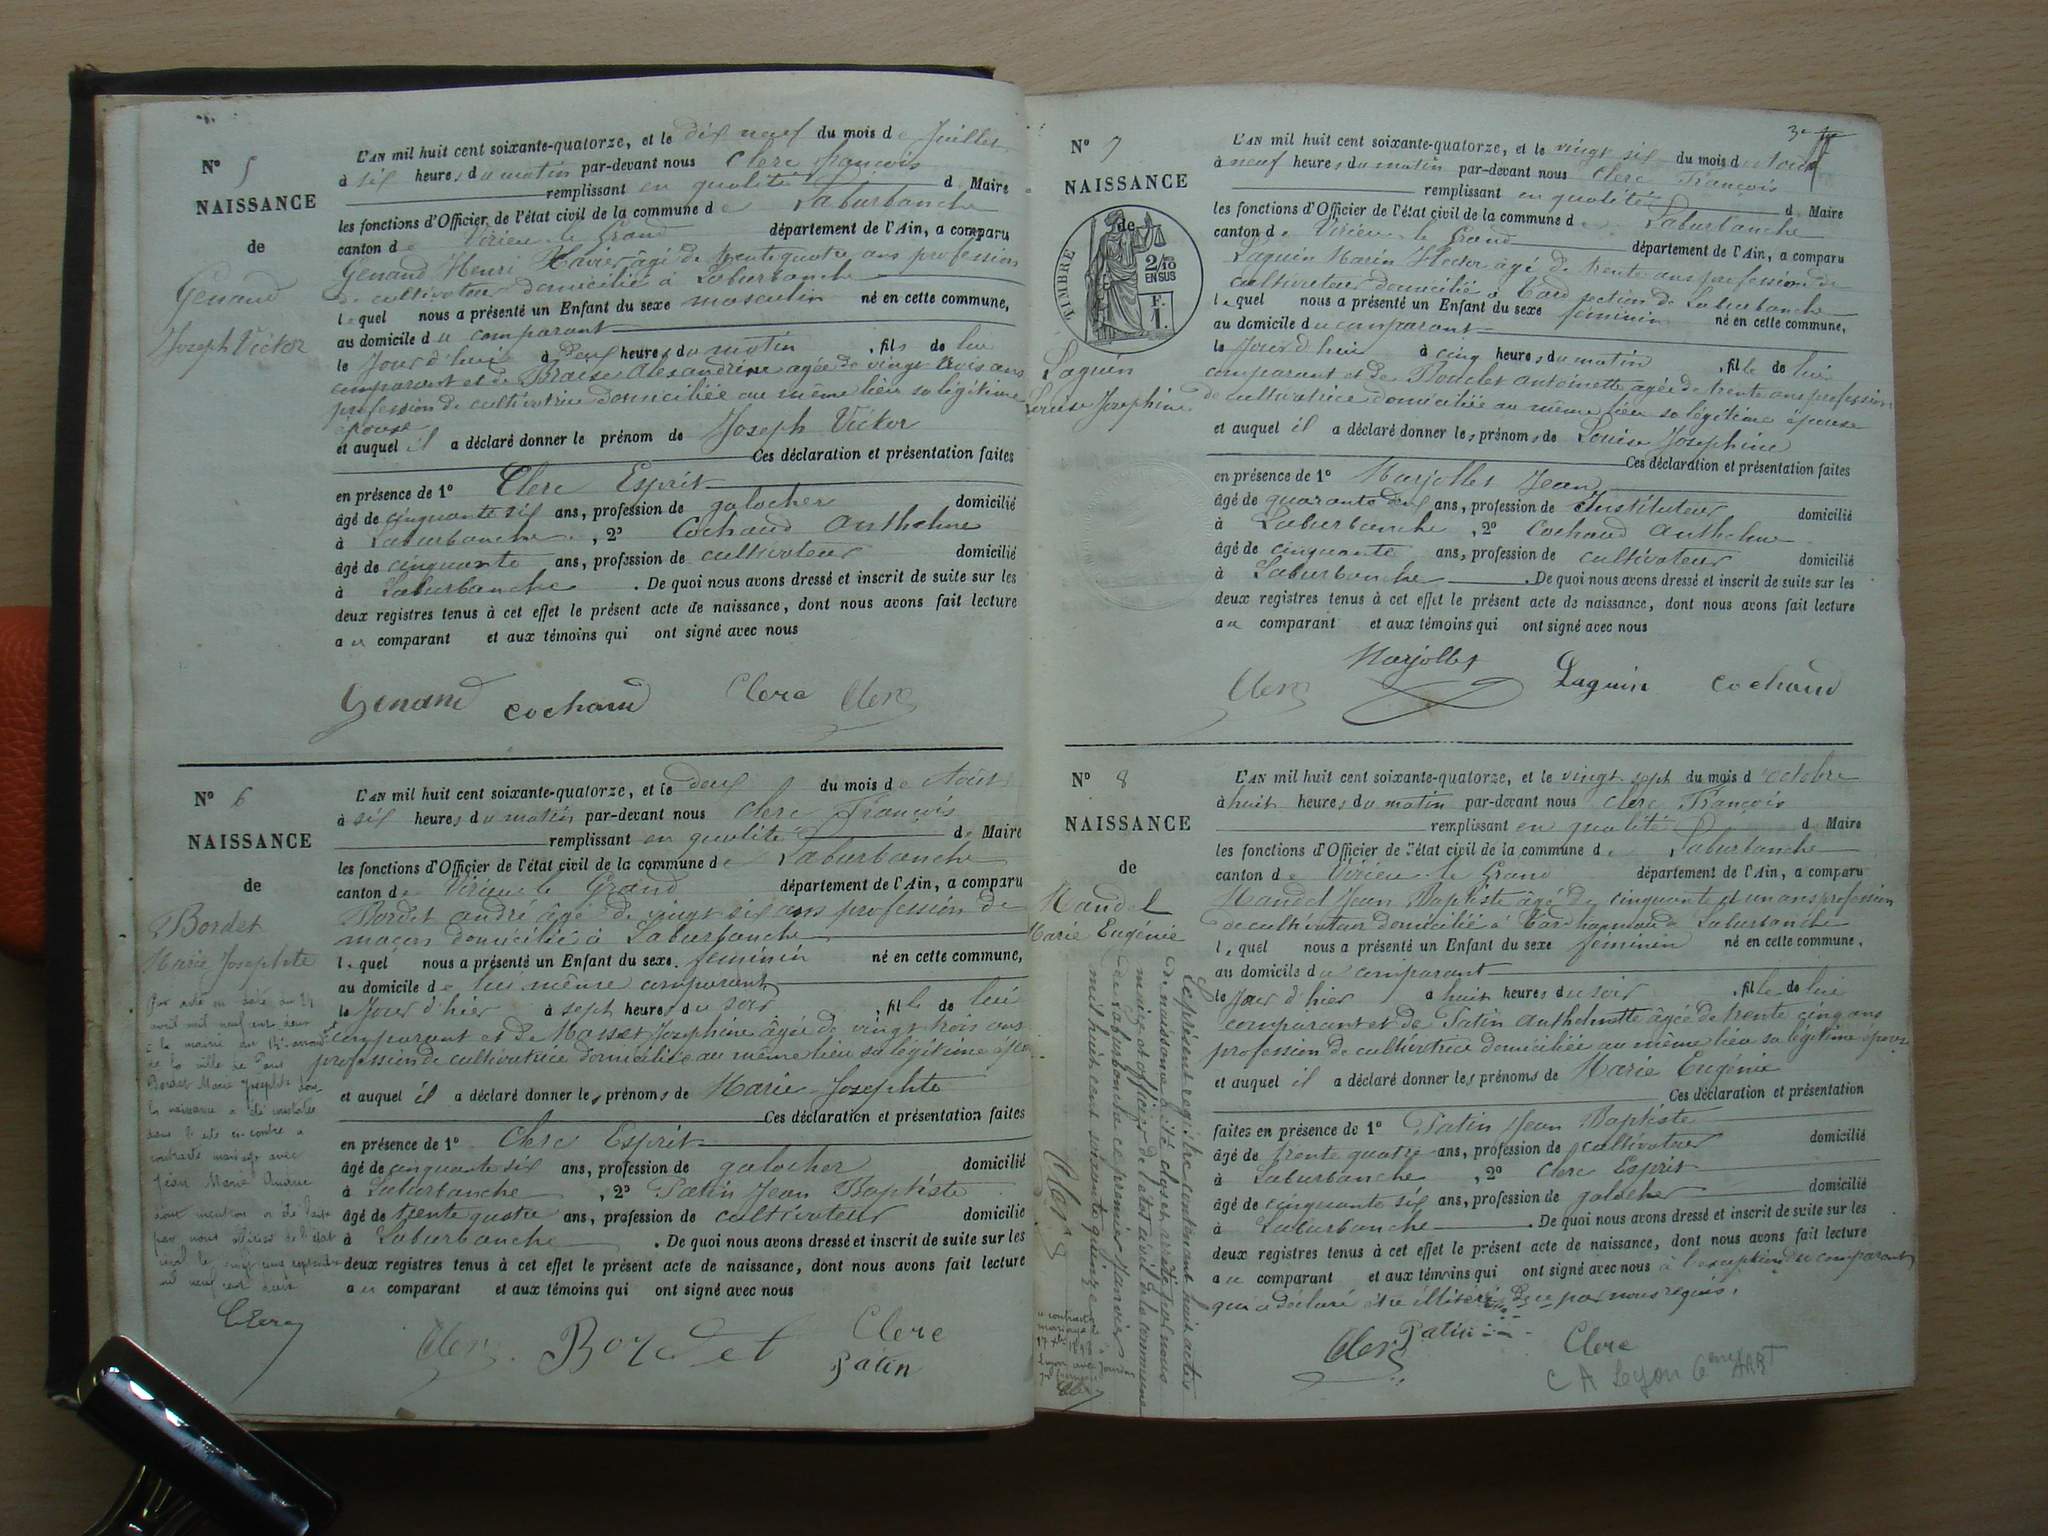 N° 5
NAISSANCE
de
Genand
Joseph Victor
L'AN mil huit cent soixante-quatorze, et le dix neuf du mois de Juillet
à six heures du matin par-devant nous Clerc François
remplissant en qualité de Maire
les fonctions d'Officier de l'état civil de la commune de Laburbanche
canton de Virieu-le-Grand département de l'Ain, a comparu
Genand Henri Xavier âgé de trente quatre ans profession
de cultivateur domicilié à Laburbanche
lequel nous a présenté un Enfant du sexe masculin né en cette commune,
au domicile du comparant
le Jour d'hui à deux heures du matin, fils de lui
comparant et de Braise Alexandrine agée de vingt trois ans
profession de cultivatrice domiciliée au même lieu sa légitime
épouse
et auquel il a déclaré donner le prénom de Joseph Victor
Ces déclaration et présentation faites
en présence de 1° Clerc Esprit
âgé de cinquante six ans, profession de galocher domicilié
à Laburbanche, 2° Cochaud Anthelme
âgé de cinquante ans, profession de cultivateur domicilié
à Laburbanche. De quoi nous avons dressé et inscrit de suite sur les
deux registres tenus à cet effet le présent acte de naissance, dont nous avons fait lecture
au comparant et aux témoins qui ont signé avec nous
Genand Cochaud Clerc Clerc
N° 6
NAISSANCE
de
Bordet
Marie Josephte
L'AN mil huit cent soixante-quatorze, et le deux du mois de Août
à six heures du matin par-devant nous Clerc François
remplissant en qualité de Maire
les fonctions d'Officier de l'état civil de la commune de Laburbanche
canton de Virieu-le-Grand département de l'Ain, a comparu
Bordet André âgé de vingt six ans profession de
maçon domicilié à Laburbanche
lequel nous a présenté un Enfant du sexe féminin né en cette commune,
au domicile de lui même comparant
le Jour d'hier à sept heures du soir, fille de lui
comparant et de Masset Josephine âgée de vingt trois ans
profession de cultivatrice domiciliée au même lieu sa légitime
et auquel il a déclaré donner les prénoms de Marie-Josephte
Ces déclaration et présentation faites
en présence de 1° Clerc Esprit
âgé de cinquante six ans, profession de galocher domicilié
à Laburbanche, 2° Patin Jean Baptiste
âgé de trente quatre ans, profession de cultivateur domicilié
à Laburbanche. De quoi nous avons dressé et inscrit de suite sur les
deux registres tenus à cet effet le présent acte de naissance, dont nous avons fait lecture
au comparant et aux témoins qui ont signé avec nous
Clerc Bordet Clerc
Patin
Par acte en date du
avril mil neuf cent deux
à la mairie du
de la ville de Paris
Bordet Marie Josephte dont
la naissance a été constatée
dans l'acte ci-contre a
contracté mariage avec
Jean Marie
dont mention a été faite
par nous officier de l'état
civil le septembre
mil neuf cent deux
Clerc
N° 7
NAISSANCE
de
TIMBRE
2/10
EN SUS
F.
1.
Laguin
Louise Josephine
L'AN mil huit cent soixante-quatorze, et le vingt six du mois d'Août
à neuf heures du matin par-devant nous Clerc François
remplissant en qualité de Maire
les fonctions d'Officier de l'état civil de la commune de Laburbanche
canton de Virieu-le-Grand département de l'Ain, a comparu
Laguin Marin Hector âgé de trente ans profession de
cultivateur domicilié à section de Laburbanche
lequel nous a présenté un Enfant du sexe féminin né en cette commune,
au domicile du comparant
le Jour d'hui à cinq heures du matin, fille de lui
comparant et de Antoinette agée de trente ans profession
de cultivatrice domiciliée au même lieu sa légitime épouse
et auquel il a déclaré donner les prénoms de Louise Josephine
Ces déclaration et présentation faites
en présence de 1° Marjollet Jean
âgé de quarante deux ans, profession de Instituteur domicilié
à Laburbanche, 2° Cochaud Anthelme
âgé de cinquante ans, profession de cultivateur domicilié
à Laburbanche. De quoi nous avons dressé et inscrit de suite sur les
deux registres tenus à cet effet le présent acte de naissance, dont nous avons fait lecture
au comparant et aux témoins qui ont signé avec nous
Clerc Marjollet Laguin Cochaud
N° 8
NAISSANCE
de
Mandel
Marie Eugénie
L'AN mil huit cent soixante-quatorze, et le vingt-sept du mois d'octobre
à huit heures du matin par-devant nous Clerc François
remplissant en qualité de Maire
les fonctions d'Officier de l'état civil de la commune de Laburbanche
canton de Virieu-le-Grand département de l'Ain, a comparu
Mandel Jean Baptiste âgé de cinquante et un ans profession
de cultivateur domicilié à Laburbanche
lequel nous a présenté un Enfant du sexe féminin né en cette commune,
au domicile du comparant
le Jour d'hier à huit heures du soir, fille de lui
comparant et de Patin Anthelmette âgée de trente cinq ans
profession de cultivatrice domiciliée au même lieu sa légitime épouse
et auquel il a déclaré donner les prénoms de Marie Eugénie
Ces déclaration et présentation
faites en présence de 1° Patin Jean Baptiste
âgé de trente quatre ans, profession de cultivateur domicilié
à Laburbanche, 2° Clerc Esprit
âgé de cinquante six ans, profession de galocher domicilié
à Laburbanche. De quoi nous avons dressé et inscrit de suite sur les
deux registres tenus à cet effet le présent acte de naissance, dont nous avons fait lecture
au comparant et aux témoins qui ont signé avec nous à l'exception du comparant
qui a déclaré être illitéré de ce par nous requis.
Clerc Patin Clerc
C A Lyon 6eme ART
Le présent registre contenant huit actes
de naissance a été clos et arrêté par nous
maire et officier de l'état civil de la commune
de Laburbanche ce premier Janvier
mil huit cent soixante quinze
Clerc
a contracté
mariage à